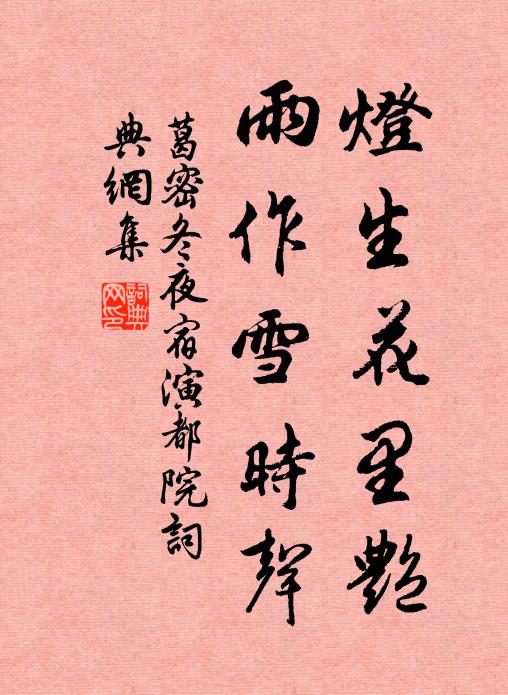 燈生花里艷
雨作雪時聲
葛密冬夜宿演都院詞
典網集
詞典
网印